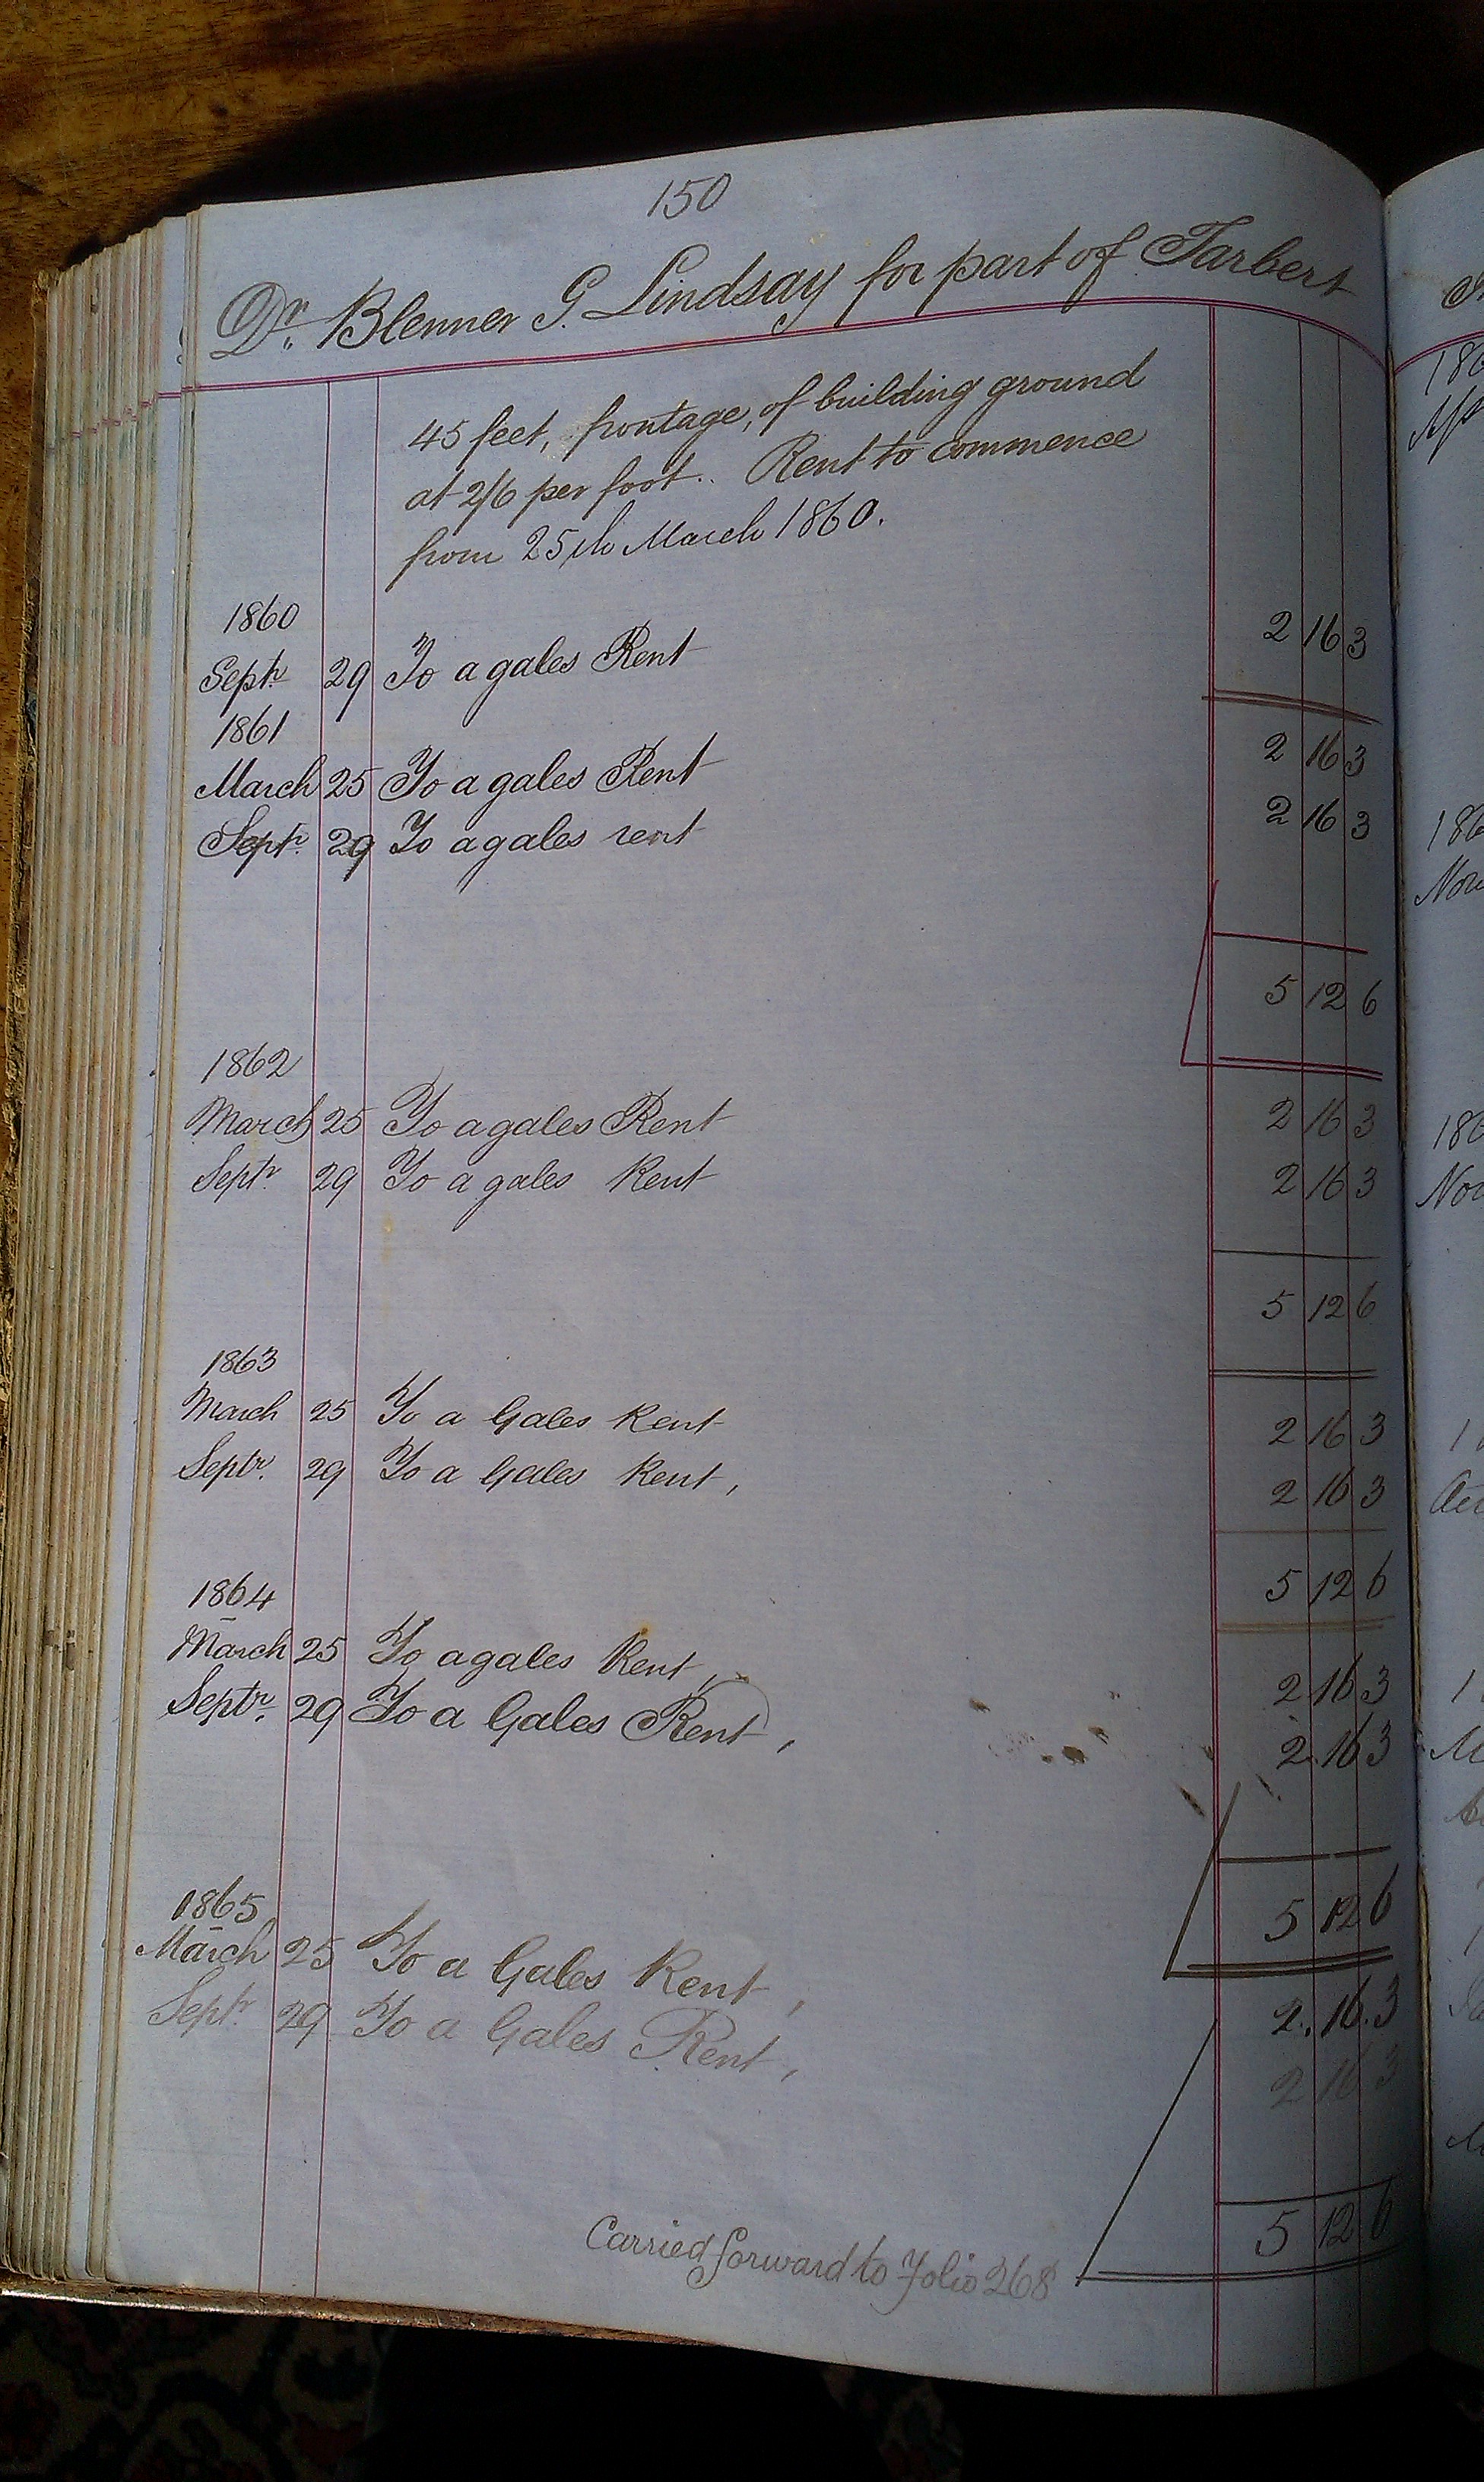 150
Dr. Blenner G. Lindsay for part of Tarbert
45 feet, frontage, of building ground
at 2/6 per foot. Rent to commence
from 25th March 1860.
1860
Septr. 29 To a gales Rent 2 16 3
1861
March 25 To a gales Rent 2 16 3
Septr. 29 To a gales rent 2 16 3
5 12 6
1862
March 25 To a gales Rent 2 16 3
Septr. 29 To a gales Rent 2 16 3
5 12 6
1863
March 25 To a Gales Rent 2 16 3
Septr. 29 To a Gales Rent, 2 16 3
5 12 6
1864
March 25 To a gales Rent, 2 16 3
Septr. 29 To a Gales Rent, 2 16 3
5 12 6
1865
March 25 To a Gales Rent, 2. 16. 3
Septr. 29 To a Gales Rent, 2 16 3
5 12 6
Carried forward to Folio 268
186
186
Nov
186
Nov